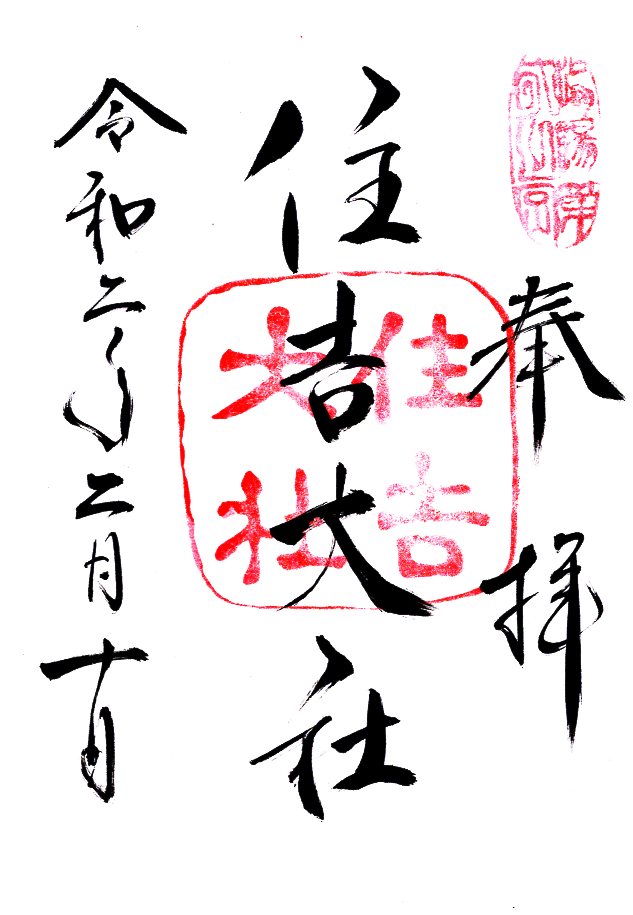 奉拝
住吉大社
住吉
大社
令和二年二月十日